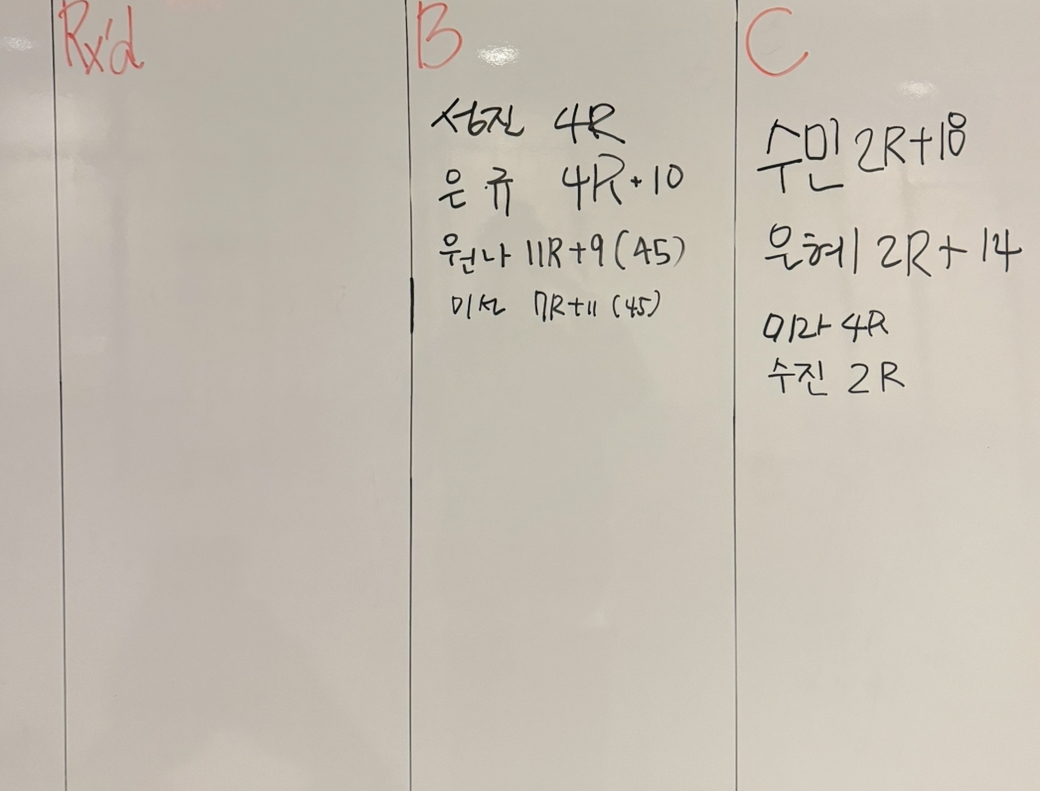 Rx'd
B
성진 4R
은규 4R+10
원나 11R+9 (45)
미선 7R+11 (45)
C
수민 2R+18
은혜 2R+14
미라 4R
수진 2R